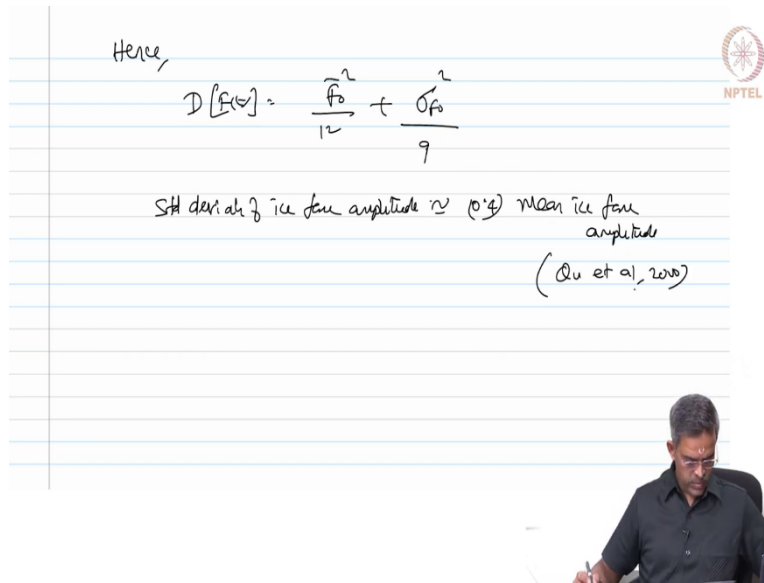 Hence,
NPTEL
D[F(t)] = F̄₀²/12 + σ_F₀²/9
Std deviatn of ice force amplitude ≃ (0.4) mean ice force
amplitude
(Qu et al, 2000)